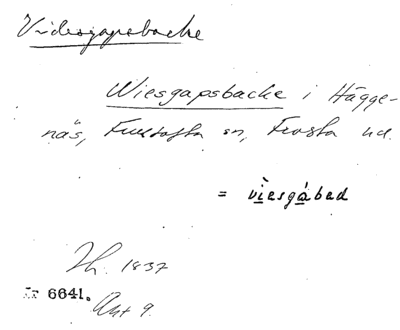 Videsgapsbacke
Wiesgapsbacke i Hägge-
näs, Fulltofta sn, Frosta hd.
= vìesgábad
Jh. 1837
Nr 6641.
Akt 9.